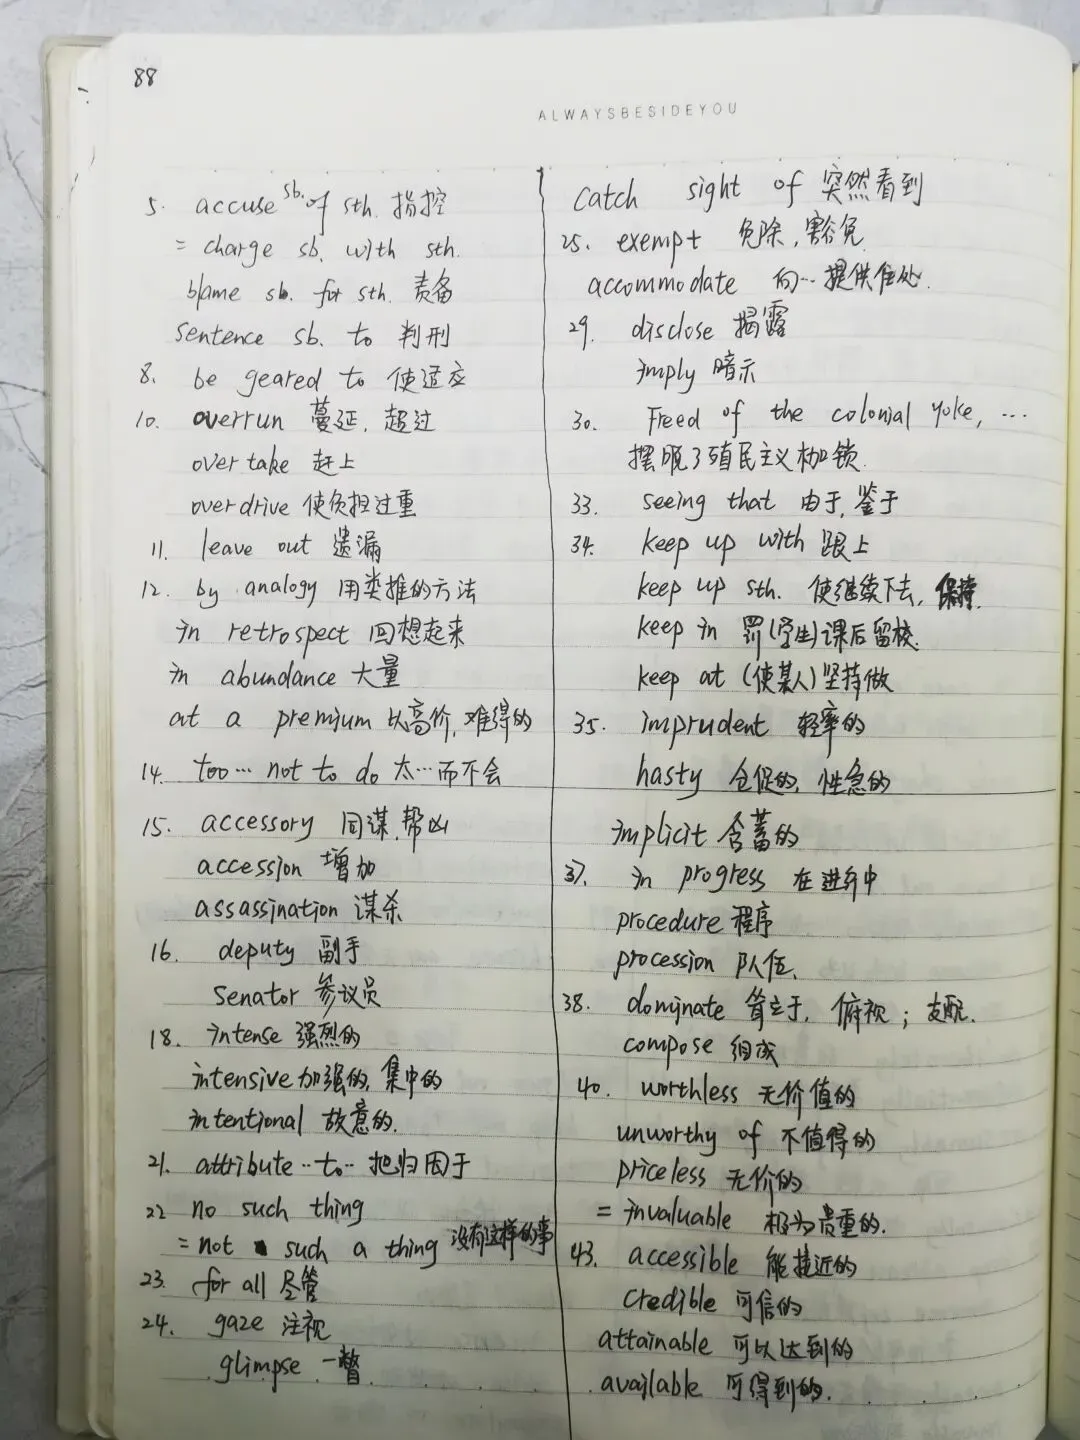 88
ALWAYSBESIDEYOU
5. accuse sb. of sth. 指控
= charge sb. with sth.
blame sb. for sth. 责备
sentence sb. to 判刑
8. be geared to 使适应
10. overrun 蔓延, 超过
overtake 赶上
overdrive 使负担过重
11. leave out 遗漏
12. by analogy 用类推的方法
in retrospect 回想起来
in abundance 大量
at a premium 以高价, 难得的
14. too… not to do 太…而不会
15. accessory 同谋, 帮凶
accession 增加
assassination 谋杀
16. deputy 副手
senator 参议员
18. intense 强烈的
intensive 加强的, 集中的
intentional 故意的.
21. attribute … to … 把归因于
22 no such thing
= not such a thing 没有这样的事
23. for all 尽管
24. gaze 注视
glimpse 一瞥
catch sight of 突然看到
25. exempt 免除, 豁免
accommodate 向…提供住处.
29. disclose 揭露
imply 暗示
30. Freed of the colonial yoke, …
摆脱了殖民主义枷锁.
33. seeing that 由于, 鉴于
34. keep up with 跟上
keep up sth. 使继续下去, 保持.
keep in 罚(学生)课后留校.
keep at (使某人)坚持做
35. imprudent 轻率的
hasty 仓促的, 性急的
implicit 含蓄的
37. in progress 在进行中
procedure 程序
procession 队伍.
38. dominate 耸立于, 俯视; 支配.
compose 组成
40. worthless 无价值的
unworthy of 不值得的
priceless 无价的
= invaluable 极为贵重的.
43. accessible 能接近的
credible 可信的
attainable 可以达到的
available 可得到的.